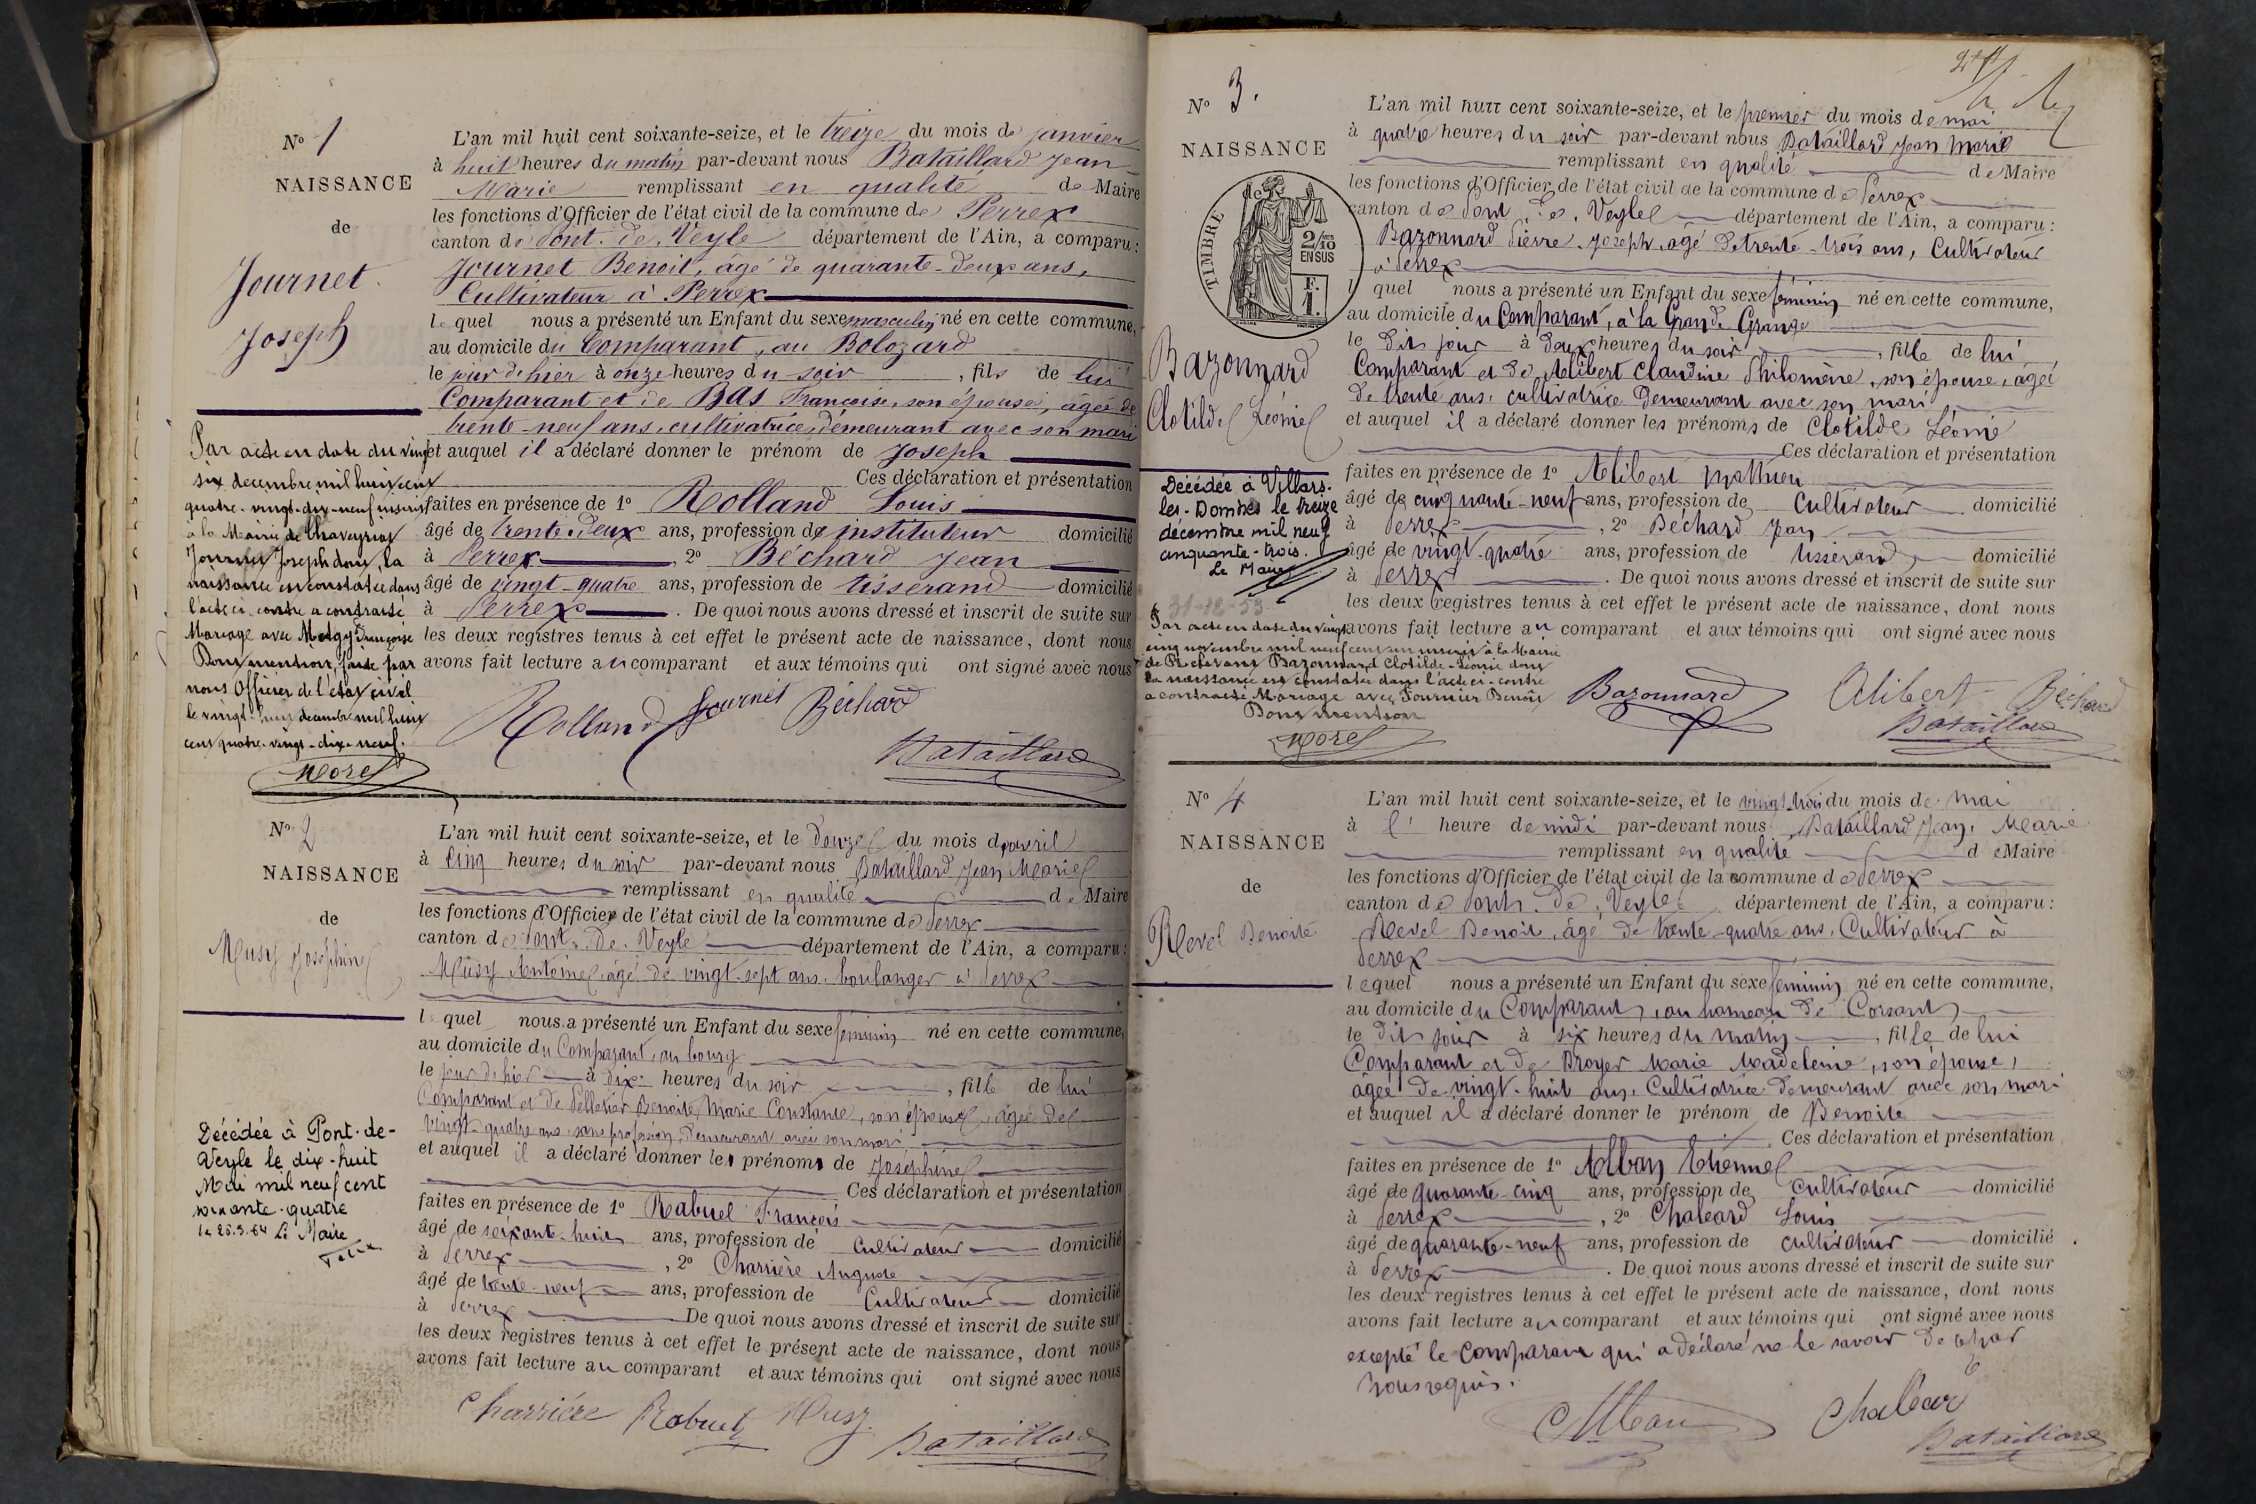 N° 1
NAISSANCE
de
Journet
Joseph
L'an mil huit cent soixante-seize, et le treize du mois de janvier
à huit heures du matin par-devant nous Bataillard Jean
Marie remplissant en qualité de Maire
les fonctions d'Officier de l'état civil de la commune de Perrex
canton de Pont-de-Veyle département de l'Ain, a comparu :
Journet Benoit, âgé de quarante-deux ans,
Cultivateur à Perrex
lequel nous a présenté un Enfant du sexe masculin né en cette commune,
au domicile du Comparant, au Bolozard
le jour de hier à onze heures du soir, fils de lui
Comparant et de Bas Françoise, son épouse, âgée de
trente-neuf ans, cultivatrice, demeurant avec son mari
et auquel il a déclaré donner le prénom de Joseph
Ces déclaration et présentation
faites en présence de 1° Rolland Louis
âgé de trente-deux ans, profession de instituteur domicilié
à Perrex, 2° Béchard Jean
âgé de vingt-quatre ans, profession de tisserand domicilié
à Perrex. De quoi nous avons dressé et inscrit de suite sur
les deux registres tenus à cet effet le présent acte de naissance, dont nous
avons fait lecture au comparant et aux témoins qui ont signé avec nous
Rolland Journet Béchard
Bataillard
Par acte en date du vingt
six décembre mil huit cent
quatre-vingt-dix-neuf inscrit
à la Mairie de Chaveyriat
Journet Joseph dont la
naissance est constatée dans
l'acte ci-contre a contracté
Mariage avec Françoise
Dont mention faite par
nous Officier de l'état civil
le vingt-huit décembre mil huit
cent quatre-vingt-dix-neuf.
Morel
N° 2
NAISSANCE
de
Musy Joséphine
L'an mil huit cent soixante-seize, et le douze du mois d'avril
à cinq heures du soir par-devant nous Bataillard Jean Marie
remplissant en qualité de Maire
les fonctions d'Officier de l'état civil de la commune de Perrex
canton de Pont-de-Veyle département de l'Ain, a comparu :
Musy Antoine, âgé de vingt-sept ans, boulanger à Perrex
lequel nous a présenté un Enfant du sexe féminin né en cette commune,
au domicile du Comparant, au bourg
le jour de hier à dix heures du soir, fille de lui
Comparant et de Pelletier Benoite, Marie Constance, son épouse, âgée de
vingt-quatre ans, sans profession, demeurant avec son mari
et auquel il a déclaré donner les prénoms de Joséphine
Ces déclaration et présentation
faites en présence de 1° Rabuel François
âgé de soixante-huit ans, profession de Cultivateur domicilié
à Perrex, 2° Charrière Auguste
âgé de trente-neuf ans, profession de Cultivateur domicilié
à Perrex De quoi nous avons dressé et inscrit de suite sur
les deux registres tenus à cet effet le présent acte de naissance, dont nous
avons fait lecture au comparant et aux témoins qui ont signé avec nous
Charrière Rabuel Musy
Bataillard
Décédée à Pont-de-
Veyle le dix-huit
Mai mil neuf cent
soixante-quatre
Le Maire
N° 3.
NAISSANCE
de
TIMBRE
2/10
EN SUS
F.
1.
Bazonnard
Clotilde Léonie
L'an mil huit cent soixante-seize, et le premier du mois de mai
à quatre heures du soir par-devant nous Bataillard Jean Marie
remplissant en qualité de Maire
les fonctions d'Officier de l'état civil de la commune de Perrex
canton de Pont-de-Veyle département de l'Ain, a comparu :
Bazonnard Pierre-Joseph, âgé de trente-trois ans, Cultivateur
à Perrex
lequel nous a présenté un Enfant du sexe féminin né en cette commune,
au domicile du Comparant, à la Grande Grange
le dit jour à deux heures du soir, fille de lui
Comparant et de Alibert Claudine Philomène, son épouse, âgée
de trente ans, cultivatrice demeurant avec son mari
et auquel il a déclaré donner les prénoms de Clotilde Léonie
Ces déclaration et présentation
faites en présence de 1° Alibert Mathieu
âgé de cinquante-neuf ans, profession de Cultivateur domicilié
à Perrex, 2° Béchard Jean
âgé de vingt-quatre ans, profession de tisserand domicilié
à Perrex. De quoi nous avons dressé et inscrit de suite sur
les deux registres tenus à cet effet le présent acte de naissance, dont nous
avons fait lecture au comparant et aux témoins qui ont signé avec nous
Bazonnard Alibert Béchard
Bataillard
Décédée à Villars-
les-Dombes le treize
décembre mil neuf
cinquante-trois.
Le Maire
31-12-53
Par acte en date du vingt
cinq novembre mil neuf cent un inscrit à la Mairie
de Bazonnard Clotilde-Léonie dont
la naissance est constatée dans l'acte ci-contre
a contracté Mariage avec Fournier Benoît
Dont mention
Morel
N° 4
NAISSANCE
de
Revel Benoite
L'an mil huit cent soixante-seize, et le vingt-trois du mois de mai
à l'heure de midi par-devant nous Bataillard Jean, Marie
remplissant en qualité de Maire
les fonctions d'Officier de l'état civil de la commune de Perrex
canton de Pont-de-Veyle département de l'Ain, a comparu :
Revel Benoit, âgé de trente-quatre ans, Cultivateur à
Perrex
lequel nous a présenté un Enfant du sexe féminin né en cette commune,
au domicile du Comparant, au hameau de Corsant
le dit jour à six heures du matin, fille de lui
Comparant et de Broyer Marie Madeleine, son épouse,
agée de vingt-huit ans, Cultivatrice demeurant avec son mari
et auquel il a déclaré donner le prénom de Benoite
Ces déclaration et présentation
faites en présence de 1° Alban Etienne
âgé de quarante-cinq ans, profession de cultivateur domicilié
à Perrex, 2° Chaleard Louis
âgé de quarante-neuf ans, profession de cultivateur domicilié
à Perrex. De quoi nous avons dressé et inscrit de suite sur
les deux registres tenus à cet effet le présent acte de naissance, dont nous
avons fait lecture au comparant et aux témoins qui ont signé avec nous
excepté le comparant qui a déclaré ne le savoir de ce par
nous requis.
Alban Chaléard
Bataillard